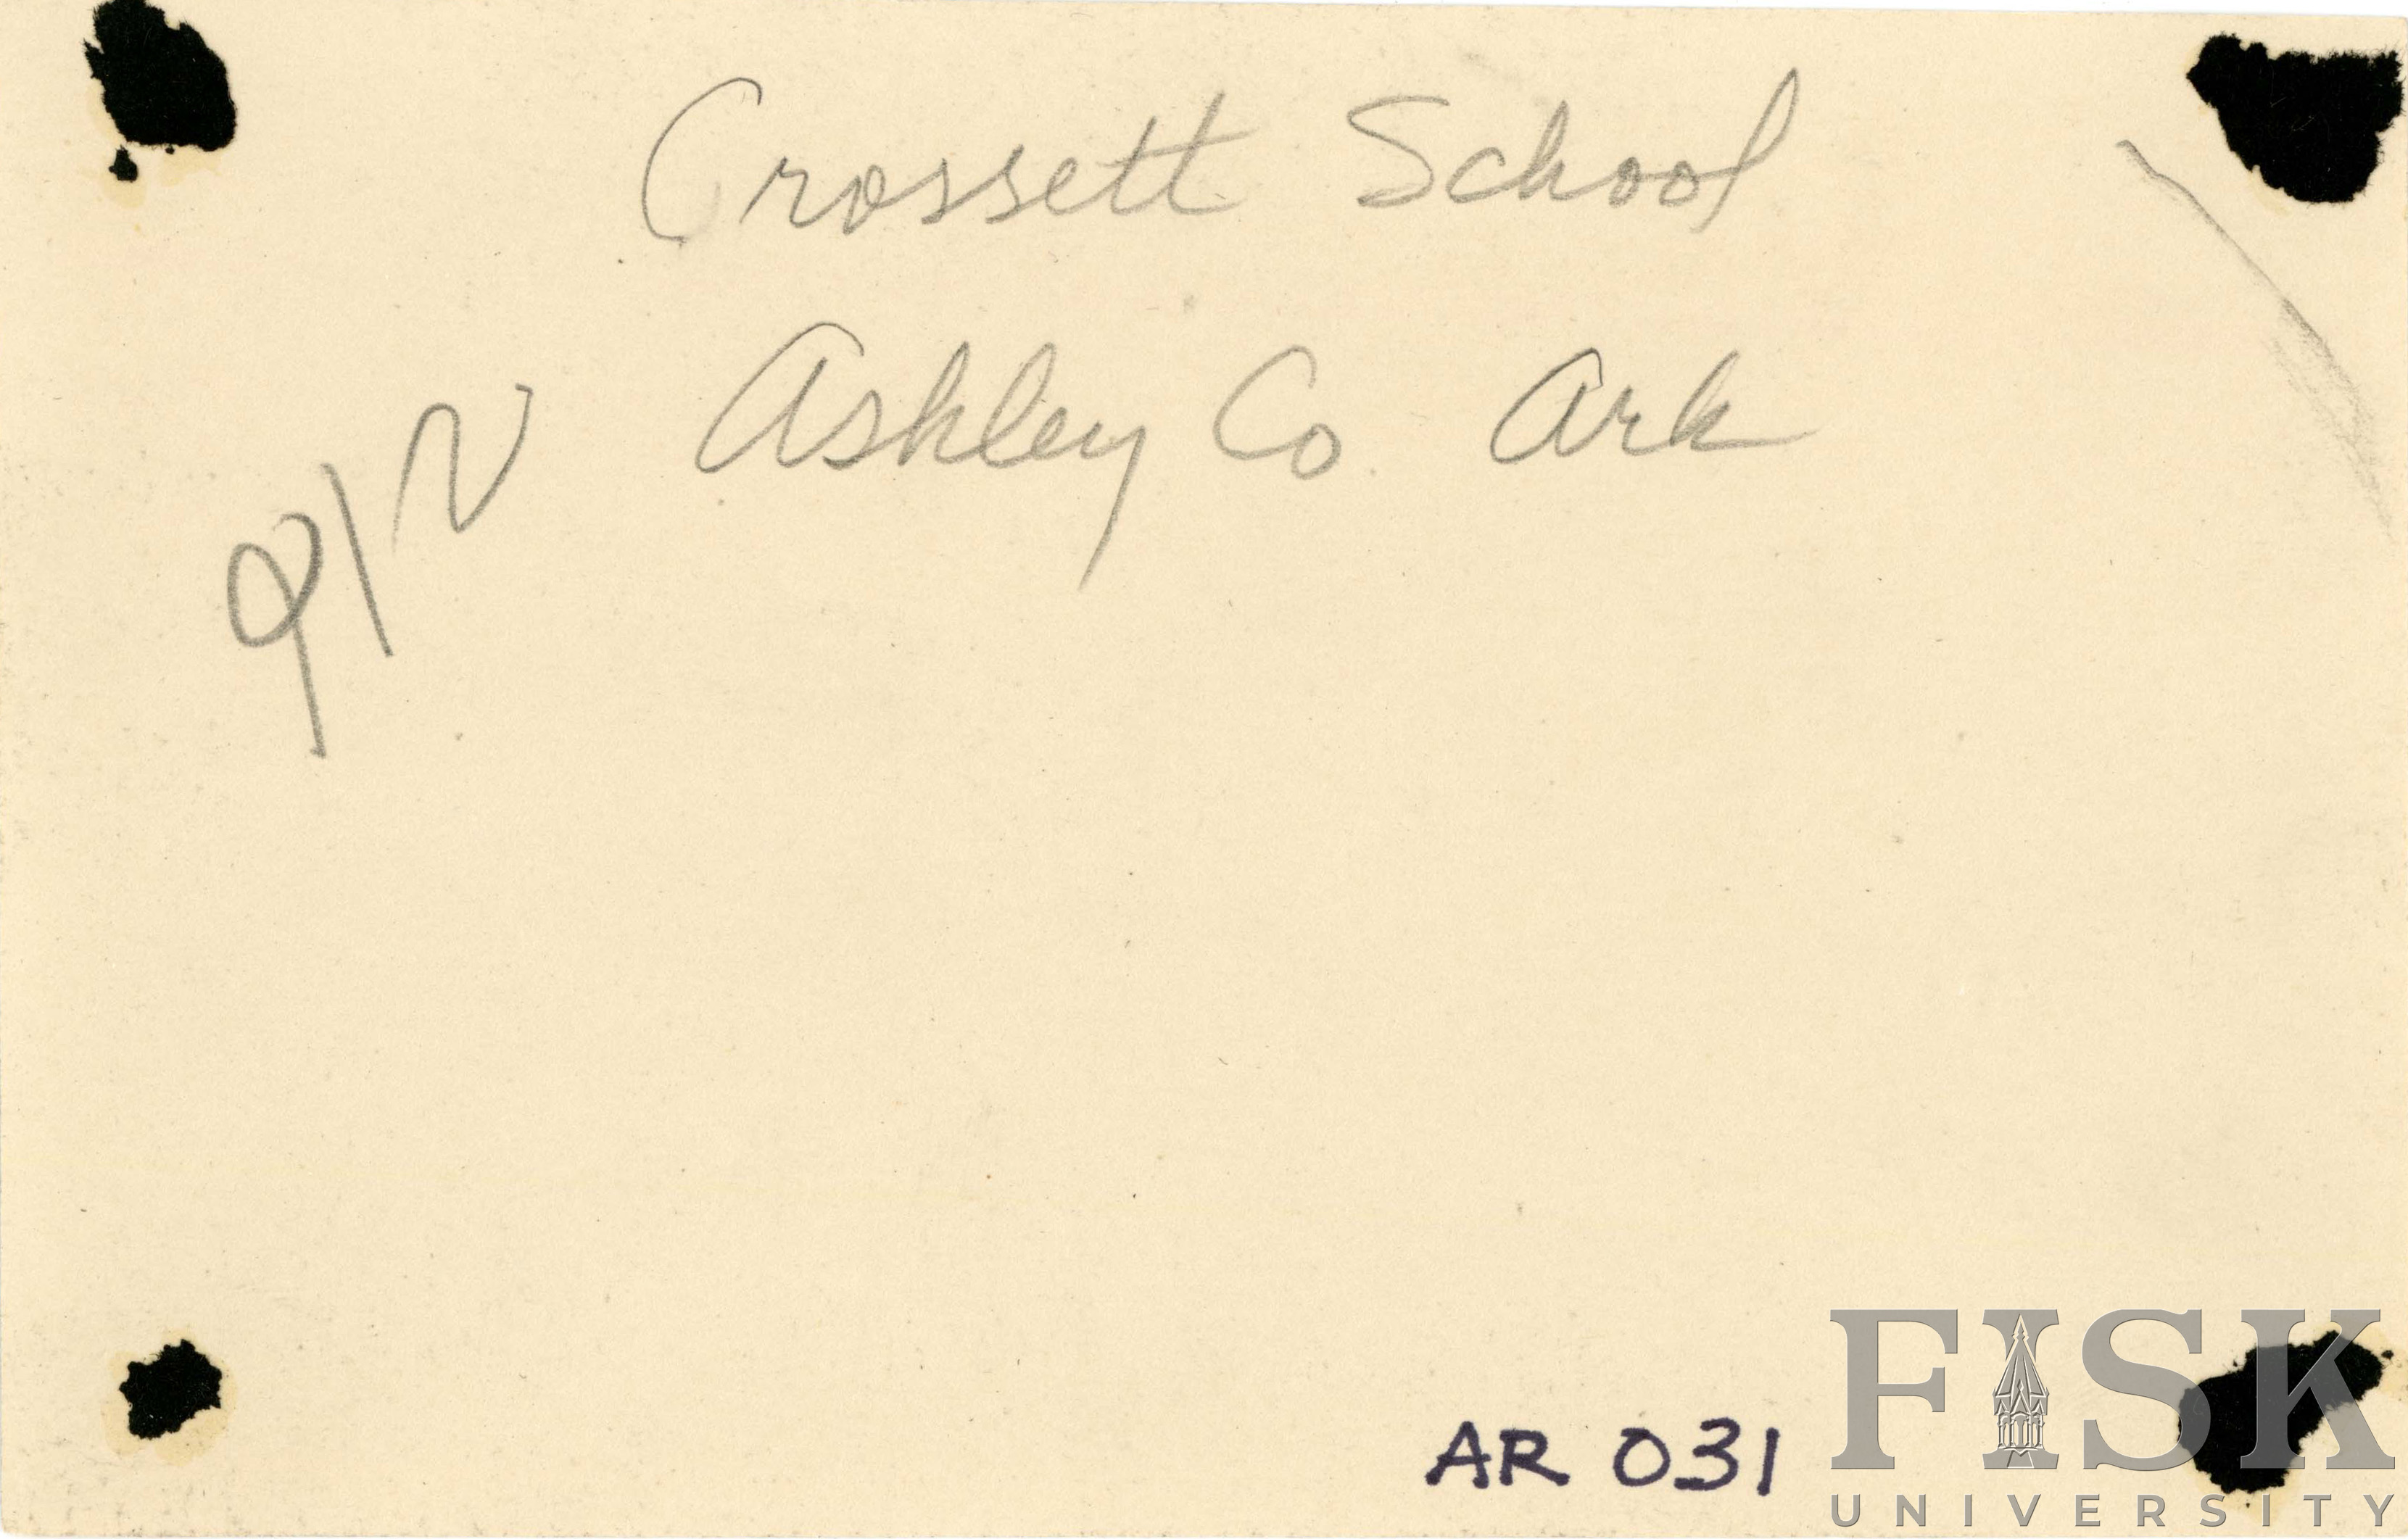 Crossett School
Ashley Co. Ark
912
AR 031
FISK
UNIVERSITY